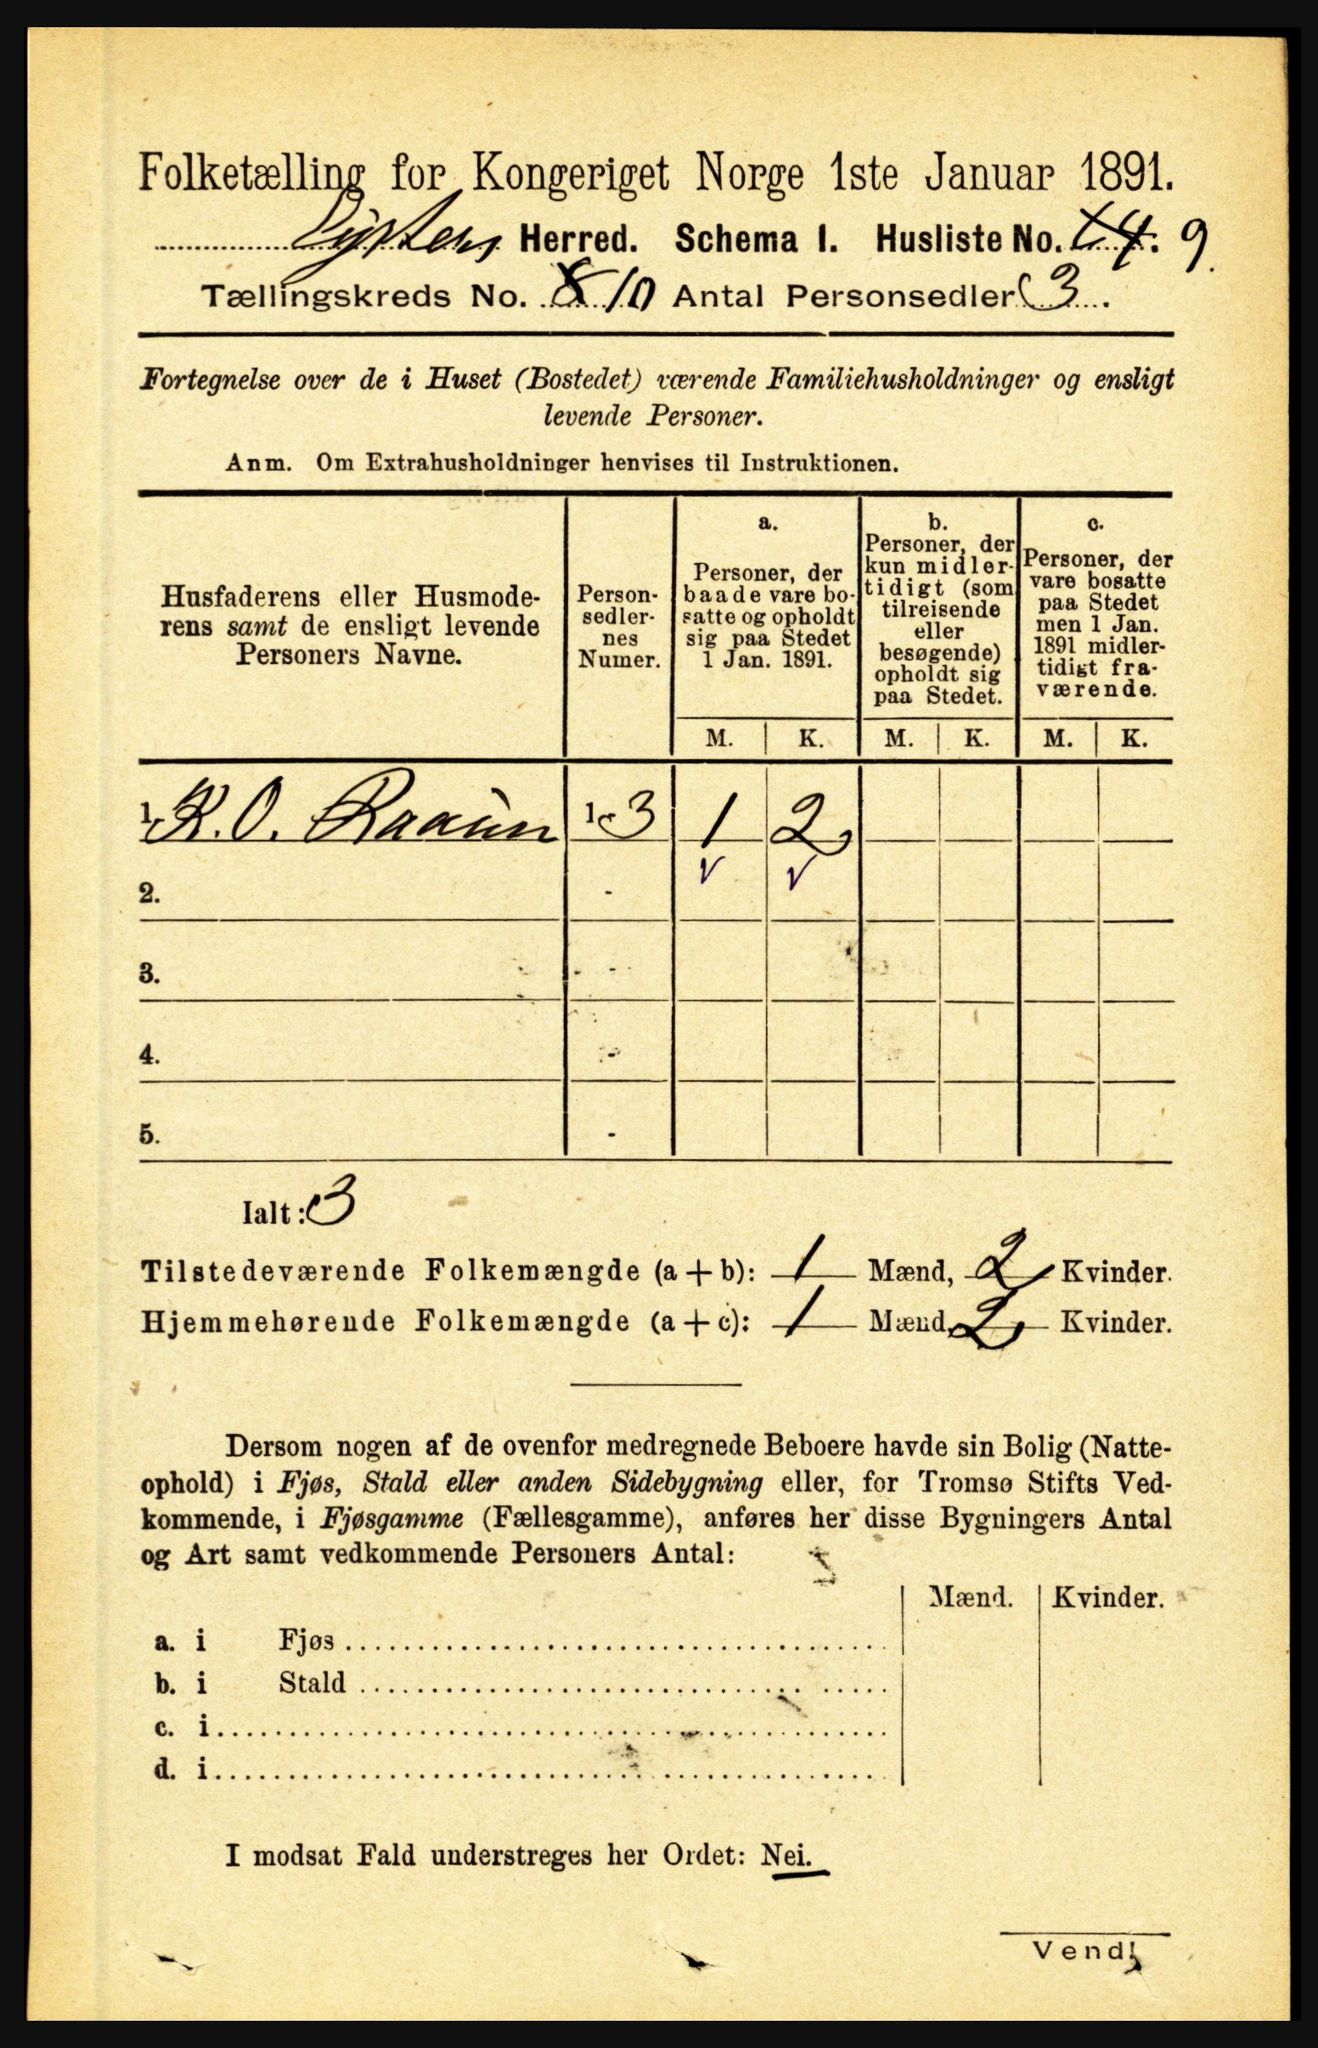 Folketælling for Kongeriget Norge 1ste Januar 1891.
Lyster Herred. Schema 1. Husliste No. 14. 9
Tællingskreds No. 8 10 Antal Personsedler 3.
Fortegnelse over de i Huset (Bostedet) værende Familiehusholdninger og ensligt
levende Personer.
Anm. Om Extrahusholdninger henvises til Instruktionen.
Husfaderens eller Husmode-
rens samt de ensligt levende
Personers Navne.
Person-
sedler-
nes
Numer.
a.
Personer, der
baade vare bo-
satte og opholdt
sig paa Stedet
1 Jan. 1891.
M. K.
b.
Personer, der
kun midler-
tidigt (som
tilreisende
eller
besøgende)
opholdt sig
paa Stedet.
M. K.
c.
Personer, der
vare bosatte
paa Stedet
men 1 Jan.
1891 midler-
tidigt fra-
værende.
M. K.
1. K. O. Raaum 1-3 1 2
2. -
3. -
4. -
5. -
Ialt: 3
Tilstedeværende Folkemængde (a + b): 1 Mænd, 2 Kvinder.
Hjemmehørende Folkemængde (a + c): 1 Mænd, 2 Kvinder.
Dersom nogen af de ovenfor medregnede Beboere havde sin Bolig (Natte-
ophold) i Fjøs, Stald eller anden Sidebygning eller, for Tromsø Stifts Ved-
kommende, i Fjøsgamme (Fællesgamme), anføres her disse Bygningers Antal
og Art samt vedkommende Personers Antal:
Mænd. Kvinder.
a. i Fjøs
b. i Stald
c. i
d. i
I modsat Fald understreges her Ordet: Nei.
Vend!